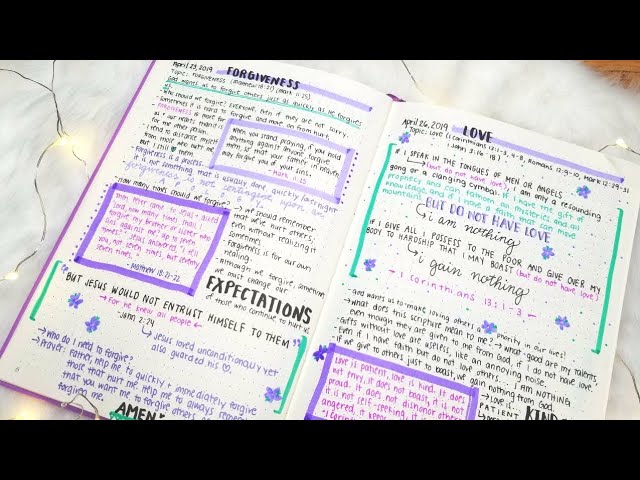 April 23, 2019 FORGIVENESS
Topic: FORGIVENESS (Matthew 18:21) (Mark 11:25)
God wants us to forgive others just as quickly as he forgives
us.
- Who should we forgive? EVERYONE. Even if they are not sorry.
Sometimes it is hard to forgive and move on from hurt.
- FORGIVENESS is more for
us + our hearts than it is
for the other person.
- I tend to distance myself
from those who hurt me
but I still
- Forgiveness is a process
it is not something that is usually done quickly (overnight
- Forgiveness is not contingent upon an
When you stand praying, if you hold
anything against anyone forgive
them, so that your Father in heaven
may forgive you of your sins.
- Mark 11:25
- How many times should we forgive?
Then Peter came to Jesus + asked
Lord, how many times shall I
forgive my brother or sister who
sins against me? Up to seven
times? Jesus answered, I tell
you, not seven times, but seventy
seven times.
- Matthew 18:21-22
→ we should remember
that we've hurt others,
even without realizing it
sometimes.
- Forgiveness is for our own
healing.
- Although we forgive, sometimes
we must change our
EXPECTATIONS
of those who continue to hurt us.
"BUT JESUS WOULD NOT ENTRUST HIMSELF TO THEM"
→ For he knew all people ←
- John 2:24
→ Jesus loved unconditionally yet
also guarded his ♡.
→ Who do I need to forgive?
→ Prayer: Father, help me to quickly + immediately forgive
those that hurt me. Help me to always remember
that you want me to forgive others as
forgiving me.
AMEN
6
April 26, 2019 LOVE
Topic: Love (1 Corinthians 13:1-3, 4-8, Romans 12:9-10, Mark 12:29-31
1 John 3:16-18)
IF I SPEAK IN THE TONGUES OF MEN OR ANGELS
(but do not have love), I am only a resounding
gong or a clanging cymbal. If I have the gift of
prophecy and can fathom all mysteries and all
knowledge, and if I have a faith that can move
mountains,
BUT DO NOT HAVE LOVE
i am nothing
IF I GIVE ALL I POSSESS TO THE POOR AND GIVE OVER MY
BODY TO HARDSHIP THAT I MAY BOAST (but do not have love)
i gain nothing
- 1 Corinthians 13:1-3 -
- God wants us to make loving others a priority in our lives!
- What does this scripture mean to me? → What good are my talents,
even though they are given to me from God, if I do not have love.
- Gifts without love are useless, like an annoying noise.
- Even if I have faith but do not love others, I AM NOTHING
- If we give to others just to boast, we gain nothing from God.
Love is patient, love is kind. It does
not envy, it does not boast, it is not
proud. It does not dishonor others
it is not self-seeking, it is not easily
angered, it keeps
1 Corinthians
- Love is
PATIENT
KIND